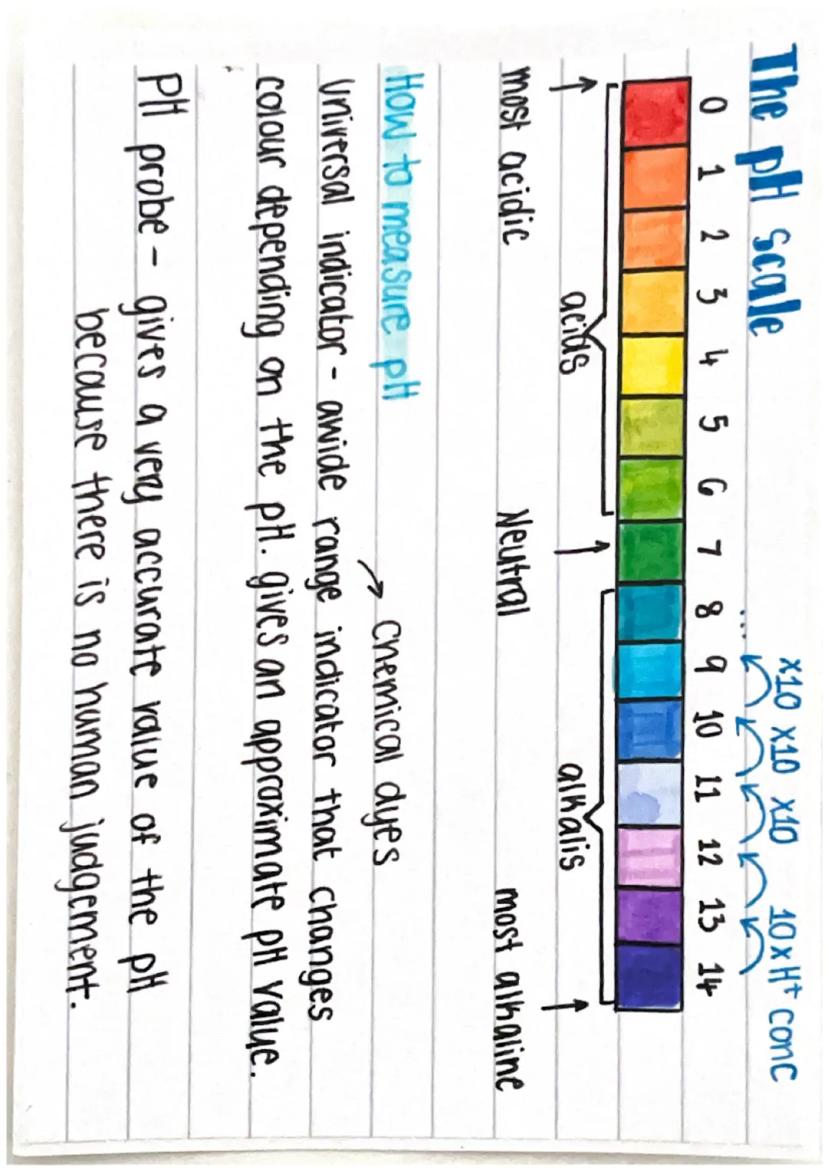 The pH scale
x10 x10 x10 10xH⁺ conc
...
0 1 2 3 4 5 6 7 8 9 10 11 12 13 14
acids alkalis
most acidic Neutral most alkaline
How to measure pH
Chemical dyes
Universal indicator - awide range indicator that changes
colour depending on the pH. gives an approximate pH value.
pH probe - gives a very accurate value of the pH
because there is no human judgement.